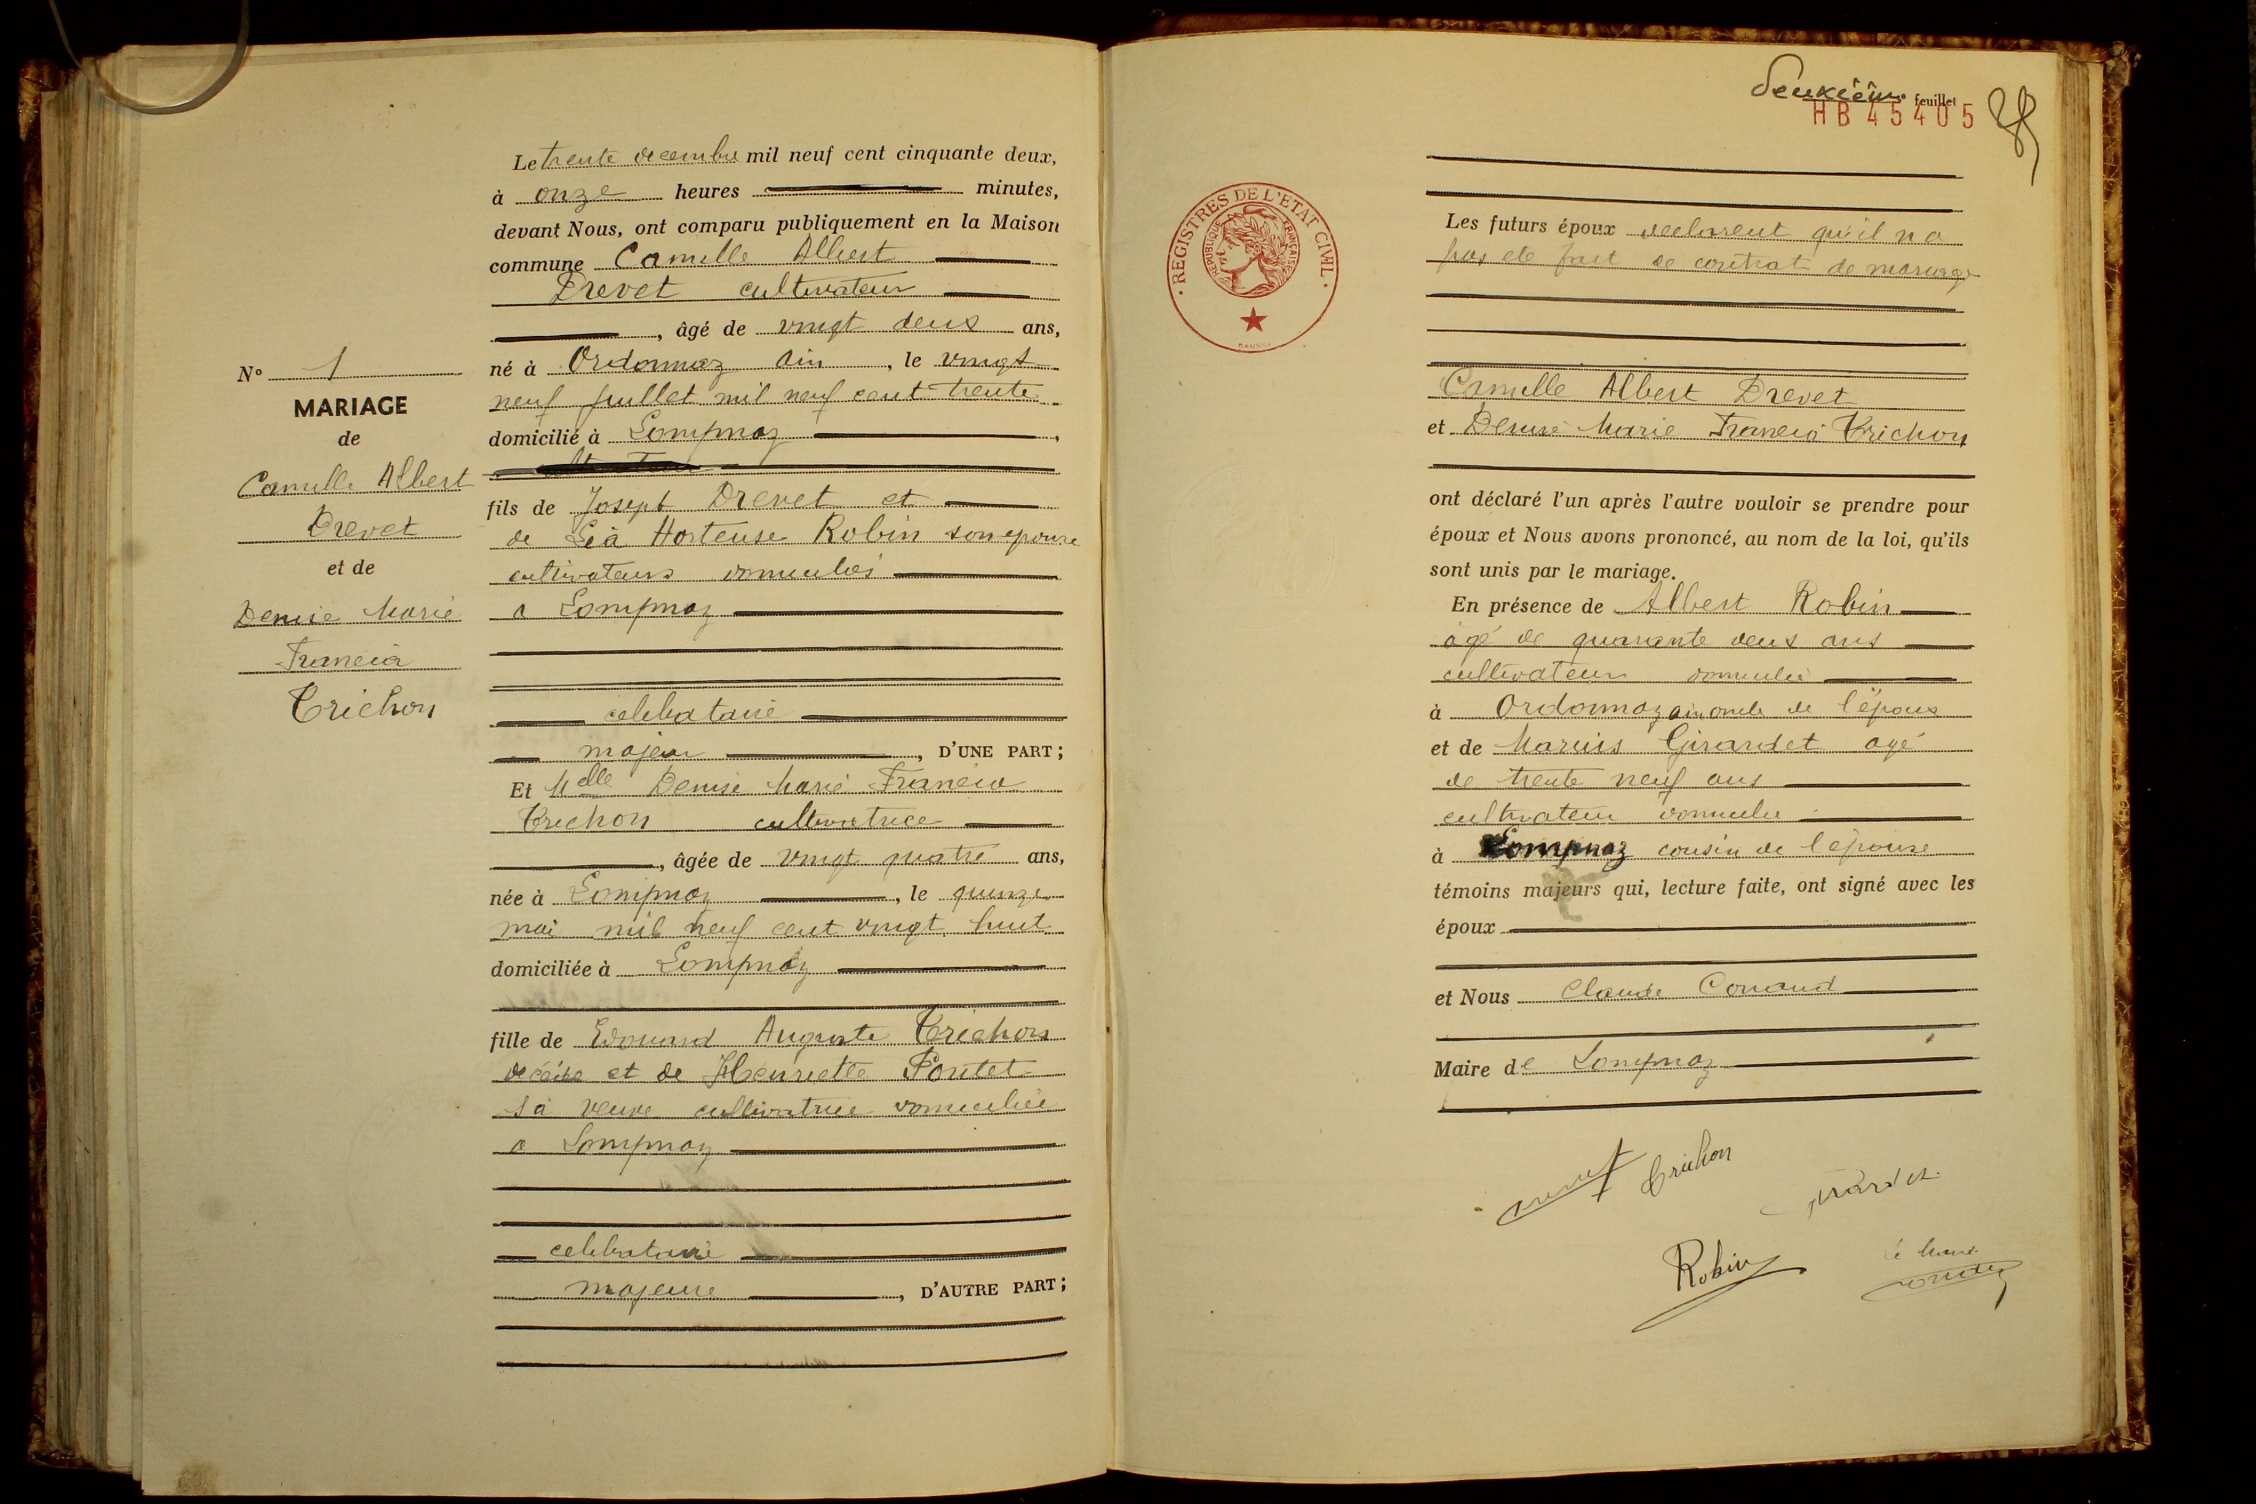 Le trente decembre mil neuf cent cinquante deux,
à onze heures minutes,
devant Nous, ont comparu publiquement en la Maison
commune Camille Albert
Drevet cultivateur
, âgé de vingt deux ans,
né à Ordonnaz ain, le vingt
neuf juillet mil neuf cent trente
domicilié à Lompnaz,
fils de Joseph Drevet et
de Léa Hortense Robin son epouse
cultivateurs domiciliés
a Lompnaz
celibataire
majeur, D'UNE PART ;
Et Melle Denise Marie Francia
Trichon cultivatrice
, âgée de vingt quatre ans,
née à Lompnaz, le quinze
mai mil neuf cent vingt huit
domiciliée à Lompnaz
fille de Edouard Auguste Trichon
décédé et de Henriette Pontet
sa veuve cultivatrice domiciliée
a Lompnaz
celibataire
majeure, D'AUTRE PART ;
N° 1
MARIAGE
de
Camille Albert
Drevet
et de
Denise Marie
Francia
Trichon
deuxième feuillet
HB 45405
REGISTRES DE L'ETAT CIVIL
REPUBLIQUE FRANÇAISE
Les futurs époux declarent qu'il n a
pas ete fait de contrat de mariage
Camille Albert Drevet
et Denise Marie Francia Trichon
ont déclaré l'un après l'autre vouloir se prendre pour
époux et Nous avons prononcé, au nom de la loi, qu'ils
sont unis par le mariage.
En présence de Albert Robin
agé de quarante deux ans
cultivateur domicilié
à Ordonnaz ain oncle de l'époux
et de Marius Girardet agé
de trente neuf ans
cultivateur domicilié
à Lompnaz cousin de l'épouse
témoins majeurs qui, lecture faite, ont signé avec les
époux
et Nous Claude Conand
Maire de Lompnaz
Drevet Trichon
Girardet
Robin
Le Maire
Conand